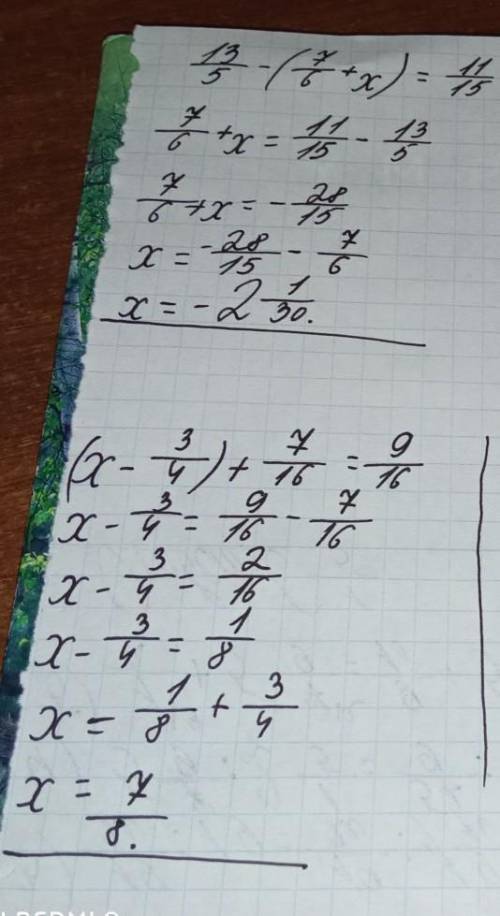 13/5 - (7/6 + x) = 11/15
7/6 + x = 11/15 - 13/5
7/6 + x = - 28/15
x = - 28/15 - 7/6
x = - 2 1/30.
(x - 3/4) + 7/16 = 9/16
x - 3/4 = 9/16 - 7/16
x - 3/4 = 2/16
x - 3/4 = 1/8
x = 1/8 + 3/4
x = 7/8.